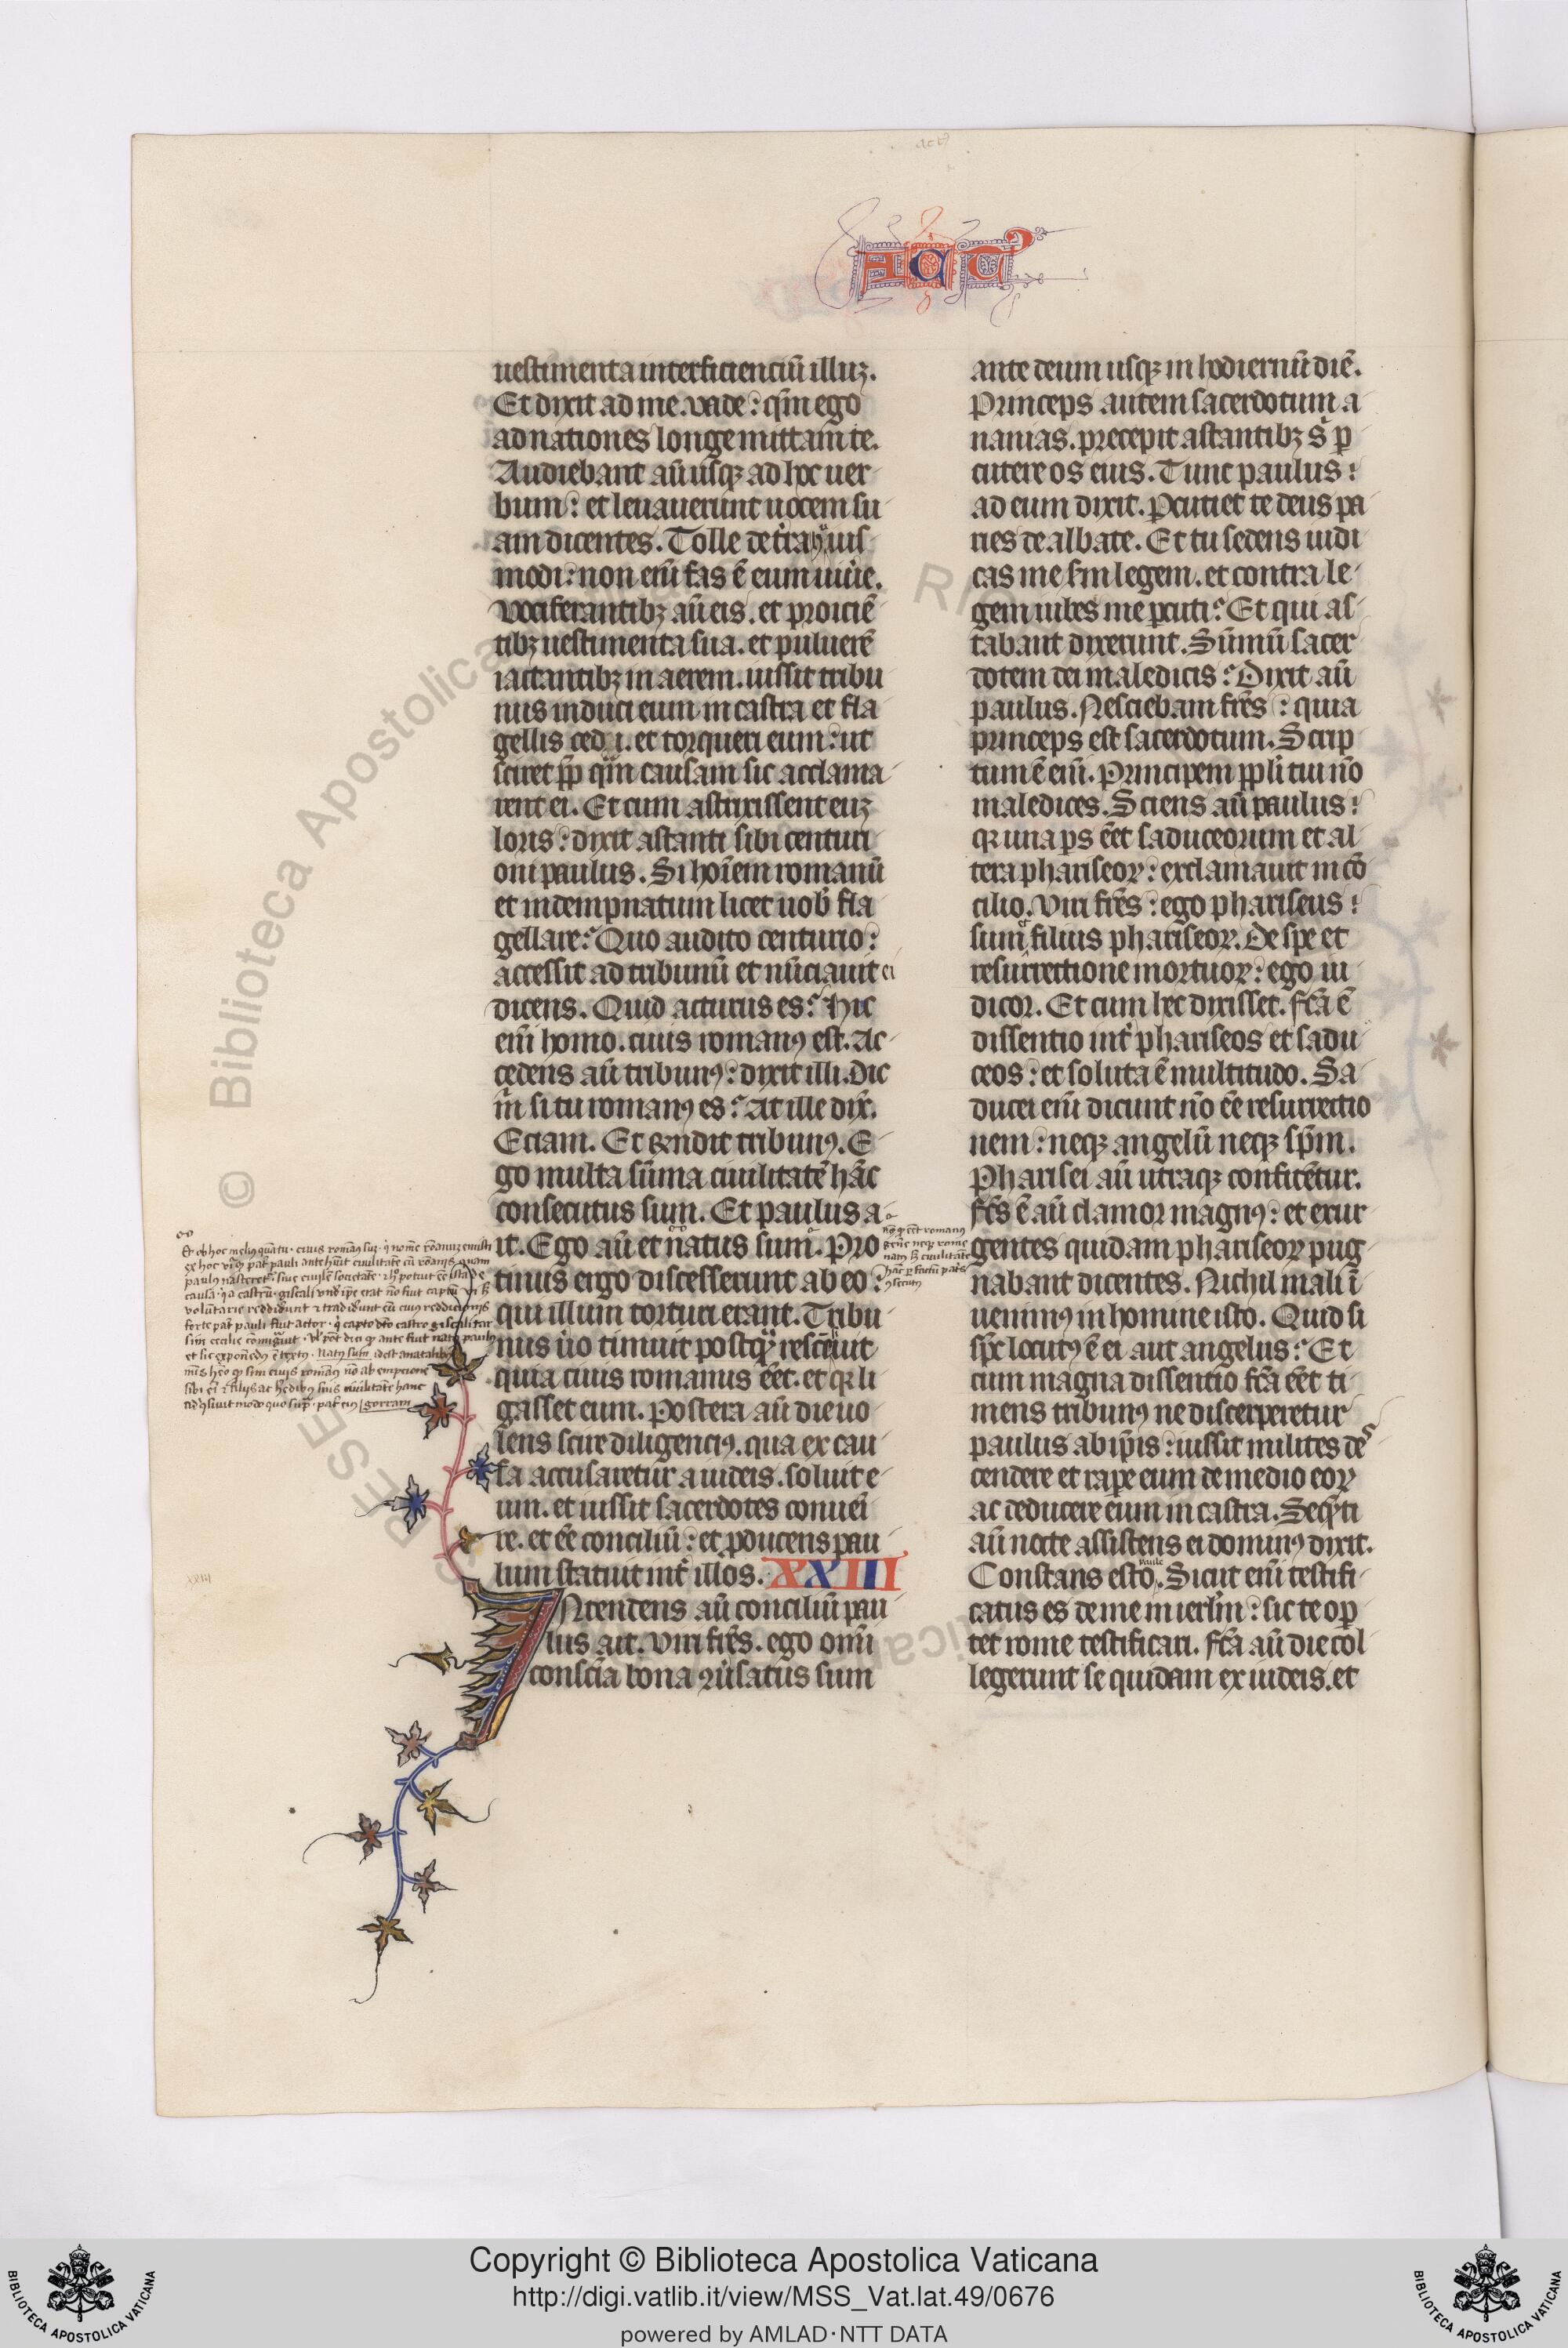 ACT
uestimenta interficienciũ illuꝫ.
Et dixit ad me. vade: qm̃ ego
ad nationes longe mittam te.
Audiebant aũ usqꝫ ad hoc uer
bum: et leuauerunt uocem su
am dicentes. Tolle de t̾ra huius
modi: non eni᷑ fas ẽ eum uiu̾e.
Vociferantibꝫ aũ eis. et proiciẽ
tibꝫ uestimenta sua. et puluerẽ
iactantibꝫ in aerem. iussit tribu
nus induci eum in castra et fla
gellis cedi. et torqueri eum: ut
sciret ꝓp̃ qm̃ causam sic acclama
rent ei. Et cum astrixissent euꝫ
loris: dixit astanti sibi centuri
oni paulus. Si hoĩem romanũ
et indempnatum licet uob̾ fla
gellare? Quo audito centurio:
accessit ad tribunũ et nũciauit ei
dicens. Quid acturus es? Hic
eni᷑ homo. ciuis romanꝰ est. Ac
cedens aũ tribunꝰ: dixit illi. Dic
m̃ si tu romanꝰ es? At ille dix̾.
Eciam. Et r̃ndit tribunꝰ. E
go multa sũma ciuilitatẽ hãc
consecutus sum. Et paulus a
it. Ego aũ et natus sum. Pro
tinus ergo discesserunt ab eo:
qui illum torturi erant. Tribu
nus u̾o timuit postqᷓ rescẽuit
quia ciuis romanus ẽet. et qꝛ li
gasset eum. Postera aũ die uo
lens scire diligenciꝰ. qua ex cau
sa accusaretur a iudeis. soluit e
um. et iussit sacerdotes conuei᷑
re. et ẽe conciliũ: et ꝓducens pau
lum statuit int̾ illos. XXIII
Ntendens aũ conciliũ pau
lus ait. Viri fr̃es. ego om̃i
conscĩa bona ꝯu̾satus sum
ante deum usqꝫ in hodiernũ diẽ.
Princeps autem sacerdotum a
nanias. precepit astantibꝫ s̾ ꝑ
cutere os eius. Tunc paulus:
ad eum dixit. Ꝑcutiet te deus pa
ries dealbate. Et tu sedens iudi
cas me scd̃m legem. et contra le
gem iubes me ꝑcuti? Et qui as
tabant dixerunt. Sũmũ sacer
dotem dei maledicis? Dixit aũ
paulus. Nesciebam fr̃es: quia
princeps est sacerdotum. Scrip
tum ẽ eni᷑. Principem ppl̾i tui nõ
maledices. Sciens aũ paulus:
qꝛ una ps̾ ẽet saduceorum et al
tera phariseoꝝ: exclamauit in cõ
cilio. Viri fr̃es: ego phariseus:
sum filius phariseoꝝ. De spe et
resurrectione mortuoꝝ: ego iu
dicor. Et cum hec dixisset. fc̃a ẽ
dissentio int̾ phariseos et sadu
ceos: et soluta ẽ multitudo. Sa
ducei eni᷑ dicunt nõ ẽe resurrectio
nem: neqꝫ angelũ neqꝫ sp̃m.
Pharisei aũ utraqꝫ confitẽtur.
fc̃s ẽ aũ clamor magnꝰ: et exur
gentes quidam phariseoꝝ pug
nabant dicentes. Nichil mali ĩ
uenimꝰ in homine isto. Quid si
sp̃c locutꝰ ẽ ei aut angelus? Et
cum magna dissentio fc̃a ẽet ti
mens tribunꝰ ne discerperetur
paulus ab ip̃is: iussit milites des
cendere et raꝑe eum de medio eoꝝ
ac deducere eum in castra. Seqñti
aũ nocte assistens ei dominꝰ dixit.
paule
Constans esto. Sicut eni᷑ testifi
catus es de me in ierl̃m: sic te oꝑ
tet rome testificari. fc̃a aũ die col
legerunt se quidam ex iudeis. et
XXIII
Copyright © Biblioteca Apostolica Vaticana
http://digi.vatlib.it/view/MSS_Vat.lat.49/0676
powered by AMLAD·NTT DATA
BIBLIOTECA APOSTOLICA VATICANA
BIBLIOTECA APOSTOLICA VATICANA